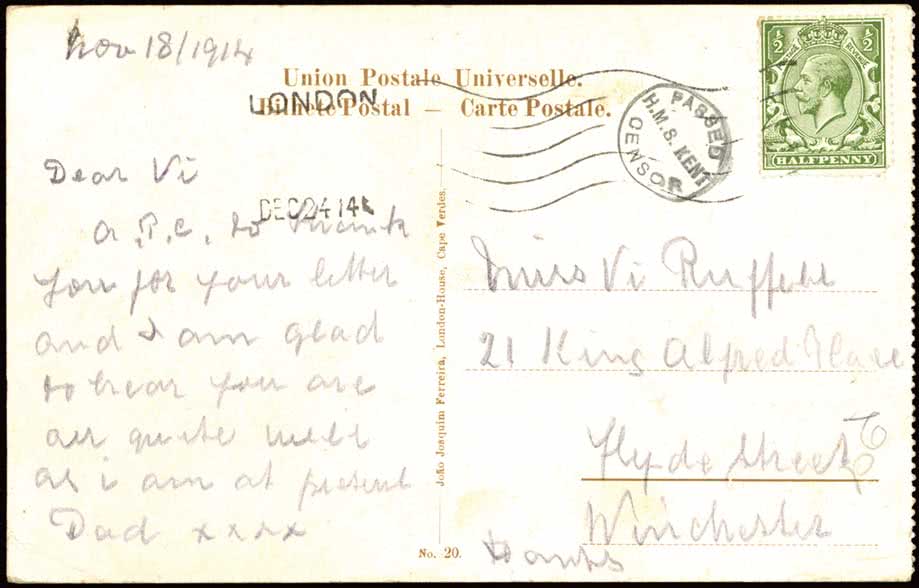 Nov 18/1914
Union Postale Universelle.
Billete Postal — Carte Postale.
LONDON
DEC 24 14
PASSED
H.M.S. KENT
CENSOR
½ ½
POSTAGE REVENUE
HALFPENNY
Dear Vi
a P.C. to thank
you for your letter
and I am glad
to hear you are
all quite well
as i am at present
Dad xxxx
João Joaquim Ferreira, London-House, Cape Verdes.
No. 20.
Miss Vi Ruffell
21 King Alfred Place
Hyde Street
Winchester
Hants